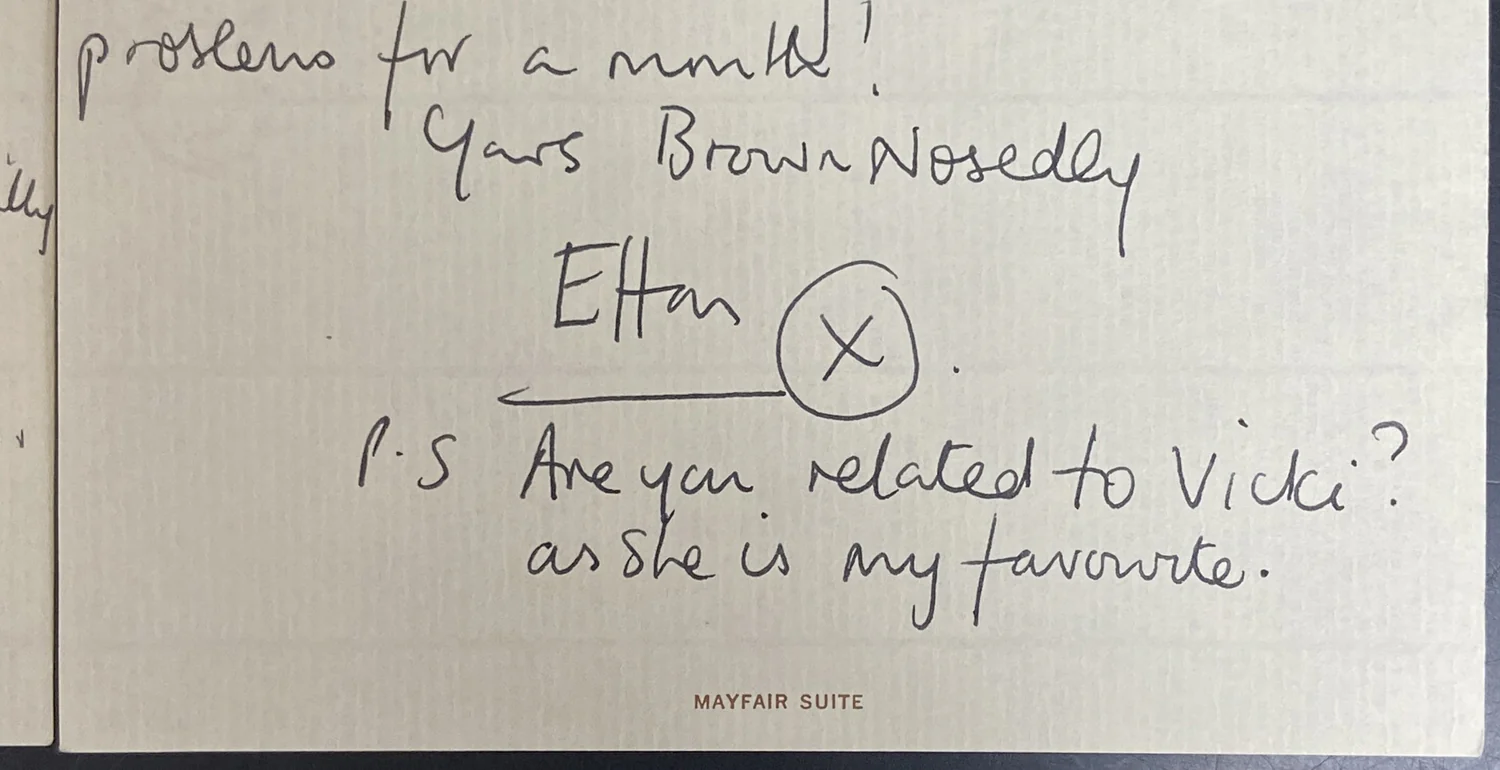 problems for a month!
Yours Brown Nosedly
Elton X.
P.S Are you related to Vicki?
as She is my favourite.
MAYFAIR SUITE